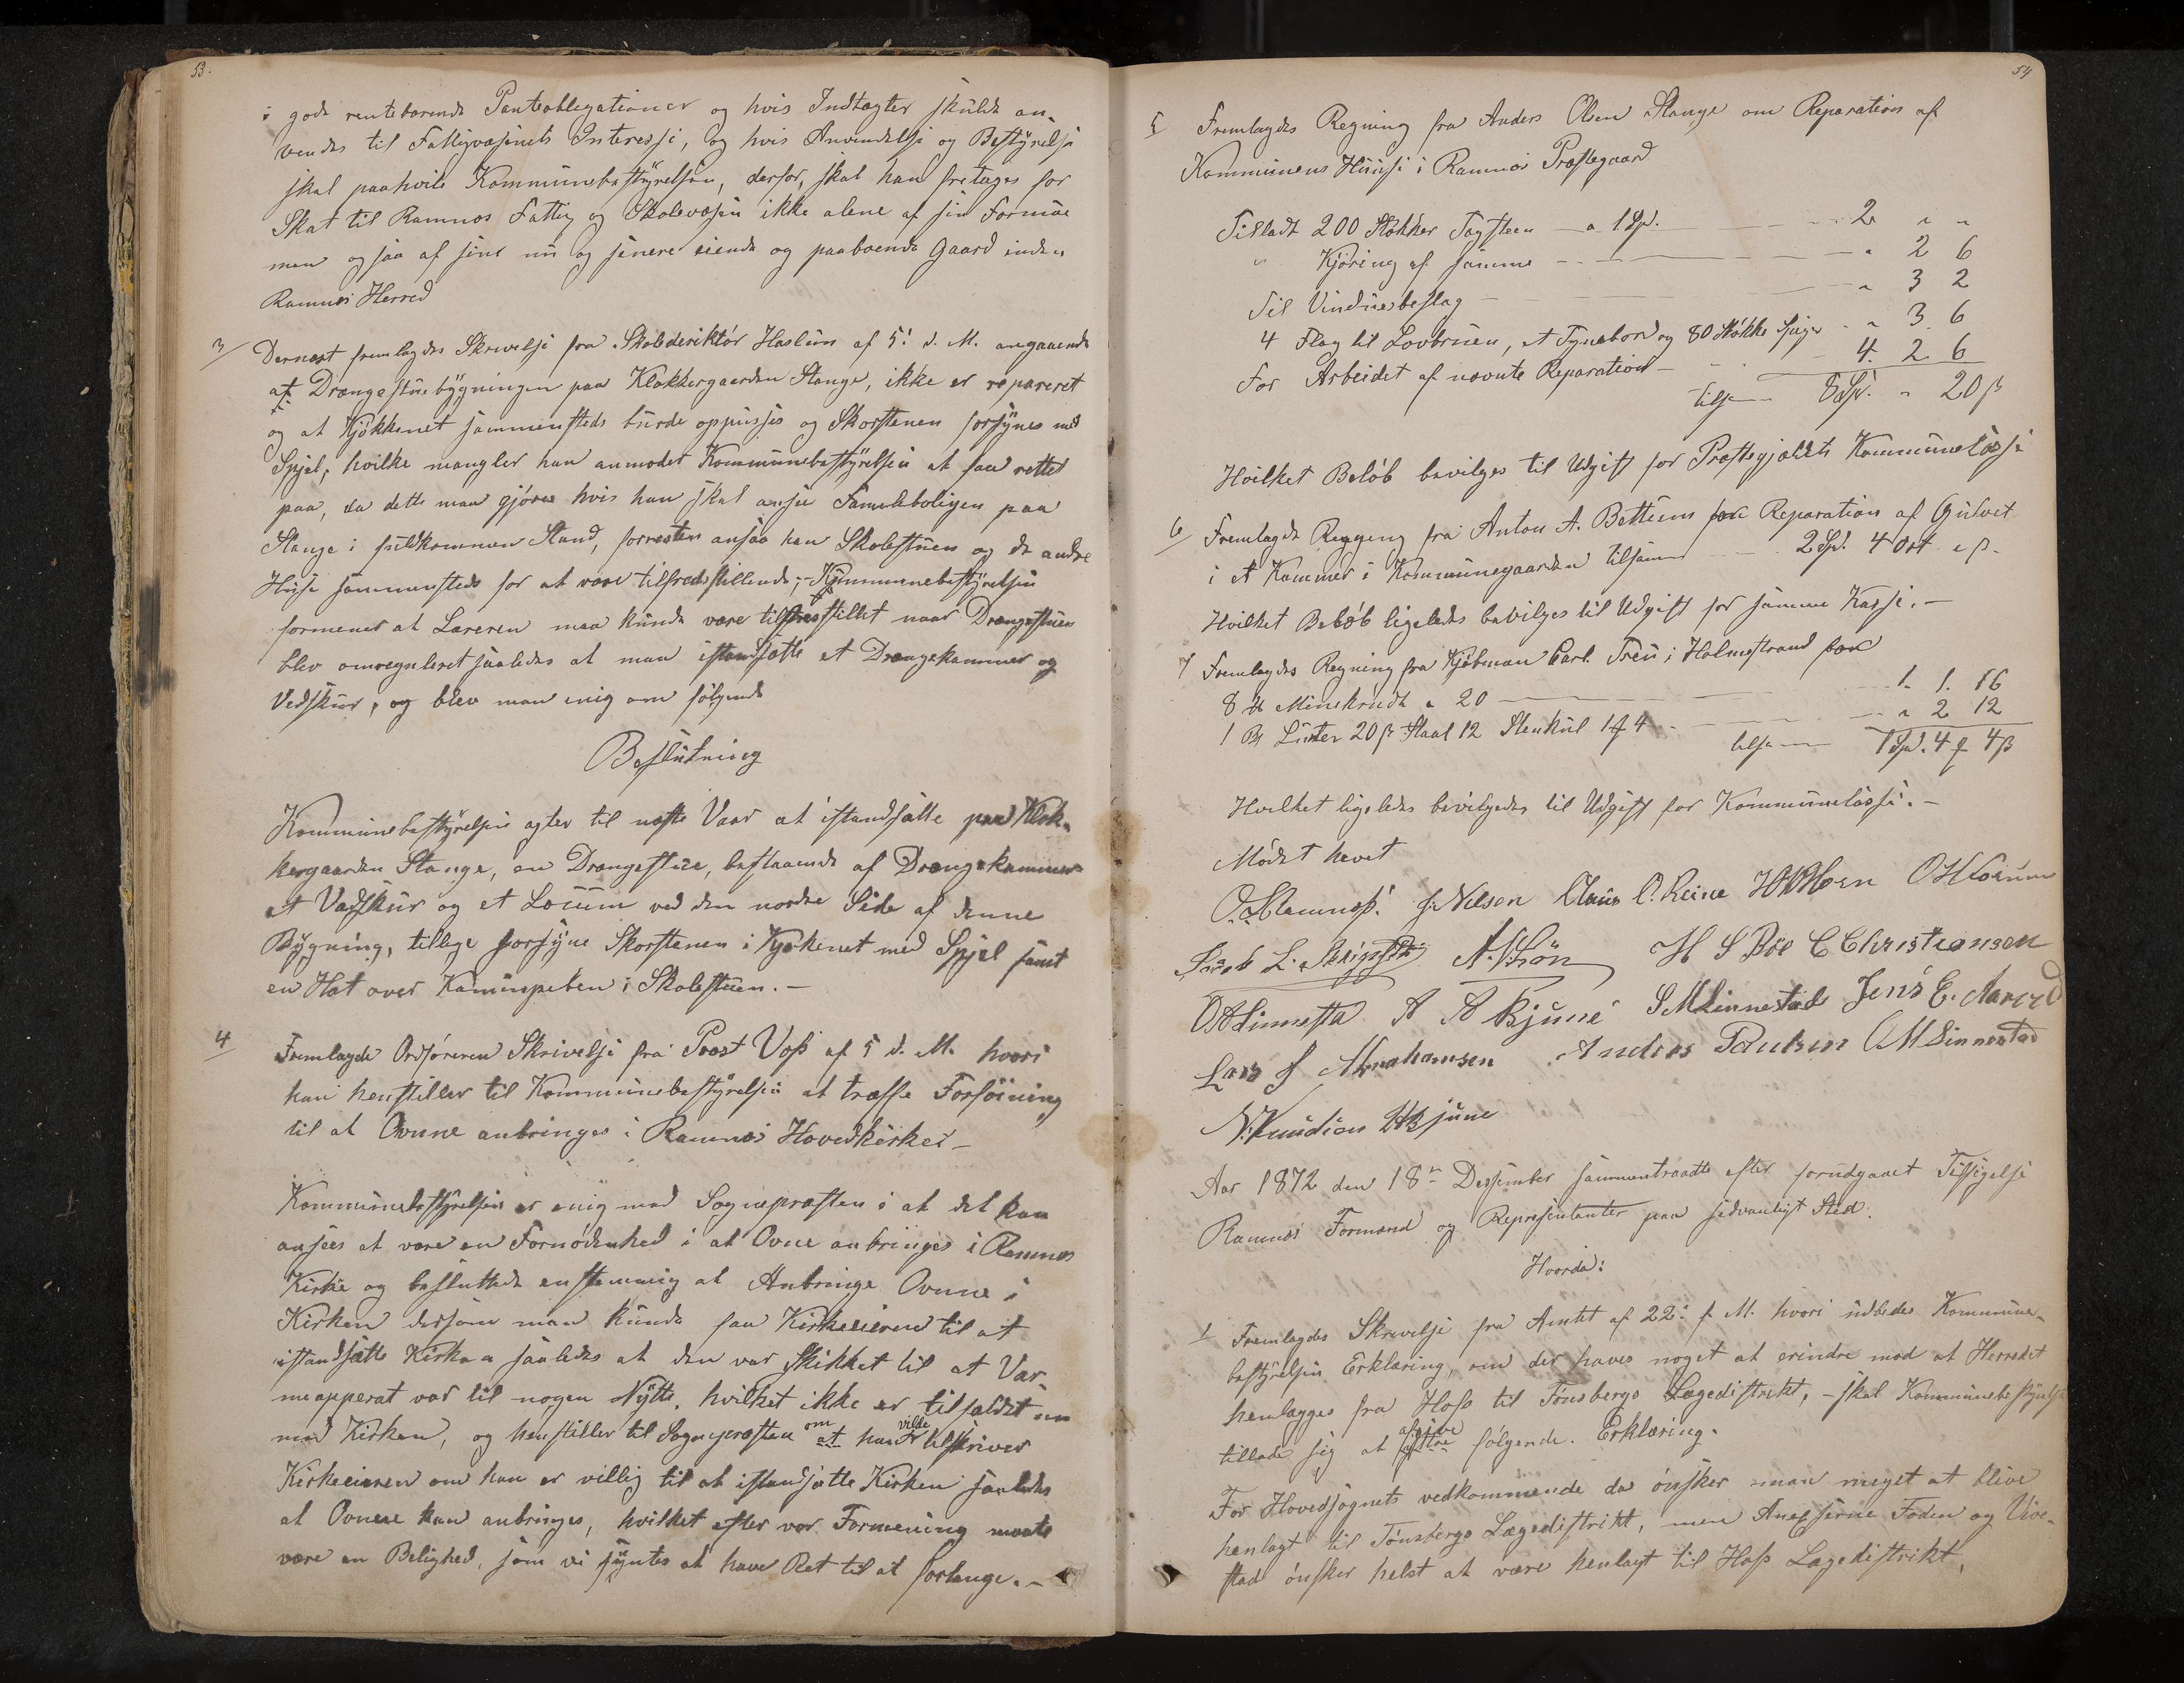 53.
i gode rentebærende Panteoblegationer og hvis Indtægter skulde an-
vendes til Fattigvæsenets Interesse, og hvis Anvendelse og Bestyrelse
skal paahvile Kommunebestyrelsen, derfor, skal han fretages for
Skat til Ramnæs Fattig og Skolevæsen ikke alene af sin Formue
men ogsaa af sine nu og senere eiende og paaboende Gaard inden
Ramnæs Herred
3/ Dernæst fremlagdes Skrivelse fra Skolederiktør Haslum af 5' d. M. angaaende
at Drængestuebygningen paa Klokkergaarden Stange, ikke er repareret
og at Kjøkkenet sammensteds burde oppusses og Skorstenen forsynes med
Spjel, hvilke mangler han anmodet Kommunebestyrelsen at faae rettet
paa, da dette maa gjøres hvis han skal ansee Familieboligen paa
Stange i fuldkommen Stand, forresten ansaa han Skolestuen og de andre
Huse sammensteds for at være tilfredsstillende; - Kommunebestyrelsen
formener at Læreren maa kunde være tilfresstillet naar Drængestuen
blev omreguleret saaledes at man istandsatte et Drængekammer og
Vedskur, og blev man enig om følgende
Beslutning
Kommunebestyrelsen agter til næste Vaar at istandsætte paa Klok-
kergaarden Stange, en Drængestue, bestaaende af Drængekammer
et Vedskur og et Locum ved den nordre Side af denne
Bygning, tillige forsyne Skorstenen i Kjøkenet med Spjel samt
en Hat over Kaminspeben i Skolestuen. -
4 Fremlagde Ordføreren Skrivelse fra Prost Voss af 5 d. M. hvori
han henstiller til Kommunebestyrelsen at træffe Forføining
til at Ovnne anbringes i Ramnæs Hovedkirke -
Kommunebestyrelsen er enig med Sognepræsten i at det kan
ansees at være en Fornødenhed i at Ovne anbringes i Ramnæs
Kirke og besluttede enstemmig at Anbringe Ovnne i
Kirken dersom man kunde faa Kirkeeieren til at
istandsætte Kirken saaledes at den var skikket til at Var-
meapperat var til nogen Nytte, hvilket ikke er tilfældet nu
med Kirken, og henstiller til Sognepræsten om at han vilde tilskriver
Kirkeeieren om han er villig til at istandsætte Kirken saaledes
at Ovnene kan anbringes, hvilket efter vor Formening maate
være en Belighed, som vi syntes at have Ret til at forlange. -
54
5 Fremlagdes Regning fra Anders Olsen Stange om Reparation af
Kommunens Huuse i Ramnæs Præstegaard
Tilladt 200 Stökker Tagsteen - a 1 Sp. - 2 " "
" Kjöring af samme - " 2 6
Til Vinduesbeslag - " 3 2
4 Flag til Lovbruen, et Tynebord og 80 Stökke Spiger - " 3. 6
For Arbeidet af nævnte Reparation - 4. 2 6
tilsam 8 Sp. " 20 ß
Hvilket Beløb bevilges til Udgift for Præstegjeldets Kommunekasse
6 Fremlagde Regning fra Anton A. Bettum for Reparation af Gulvet
i et Kammer i Kommunegaarden tilsam 2 Sp. 4 Ort " ß.
Hvilket Beløb ligeledes bevilges til Udgift for samme Kasse. -
7 Fremlagdes Regning fra Kjøbman Carl Treu i Holmestrand for
8 ℔ Minekrudt a 20 - 1. 1. 16
1 Bs Lunter 20 ß Staal 12 Stenkul 1 ƒ 4 - " 2 12
tilsam 1 Spd. 4 ƒ 4 ß
Hvilket ligeledes bevilgedes til Udgift for Kommunekasse. -
Mødet hævet
O. Ramnæs. J. Nilsen Claus O. Reine
A. Thon H S Böe C Christiansen
O A Linnesta A A Bjune S M Linnestad Jens E.
Lars J Abrahamsen Andreas Paulsen O M Linnestad
N. Knudsen Bjune
Aar 1872 den 18de Dessember sammentraadte efter forudgaaet Tilsigelse
Ramnæs Formænd og Representanter paa sedvanligt Sted.
Hvorda:
1 Fremlagdes Skrivelse fra Amtet af 22' f. M. hvori udbedes Kommune-
bestyrelsen Erklæring, om der haves noget at erindre mod at Herredet
henlægges fra Hofs til Tønsbergs Lægedistrikt, - skal Kommunebestyrelse
tillade sig at afgive følgende. Erklæring.
For Hovedsognets vedkommende da ønsker man meget at blive
henlagt til Tønsbergs Lægedistrikt, men Anexserne Foden og Vive-
stad ønsker helst at være henlagt til Hofs Lægedistrikt,